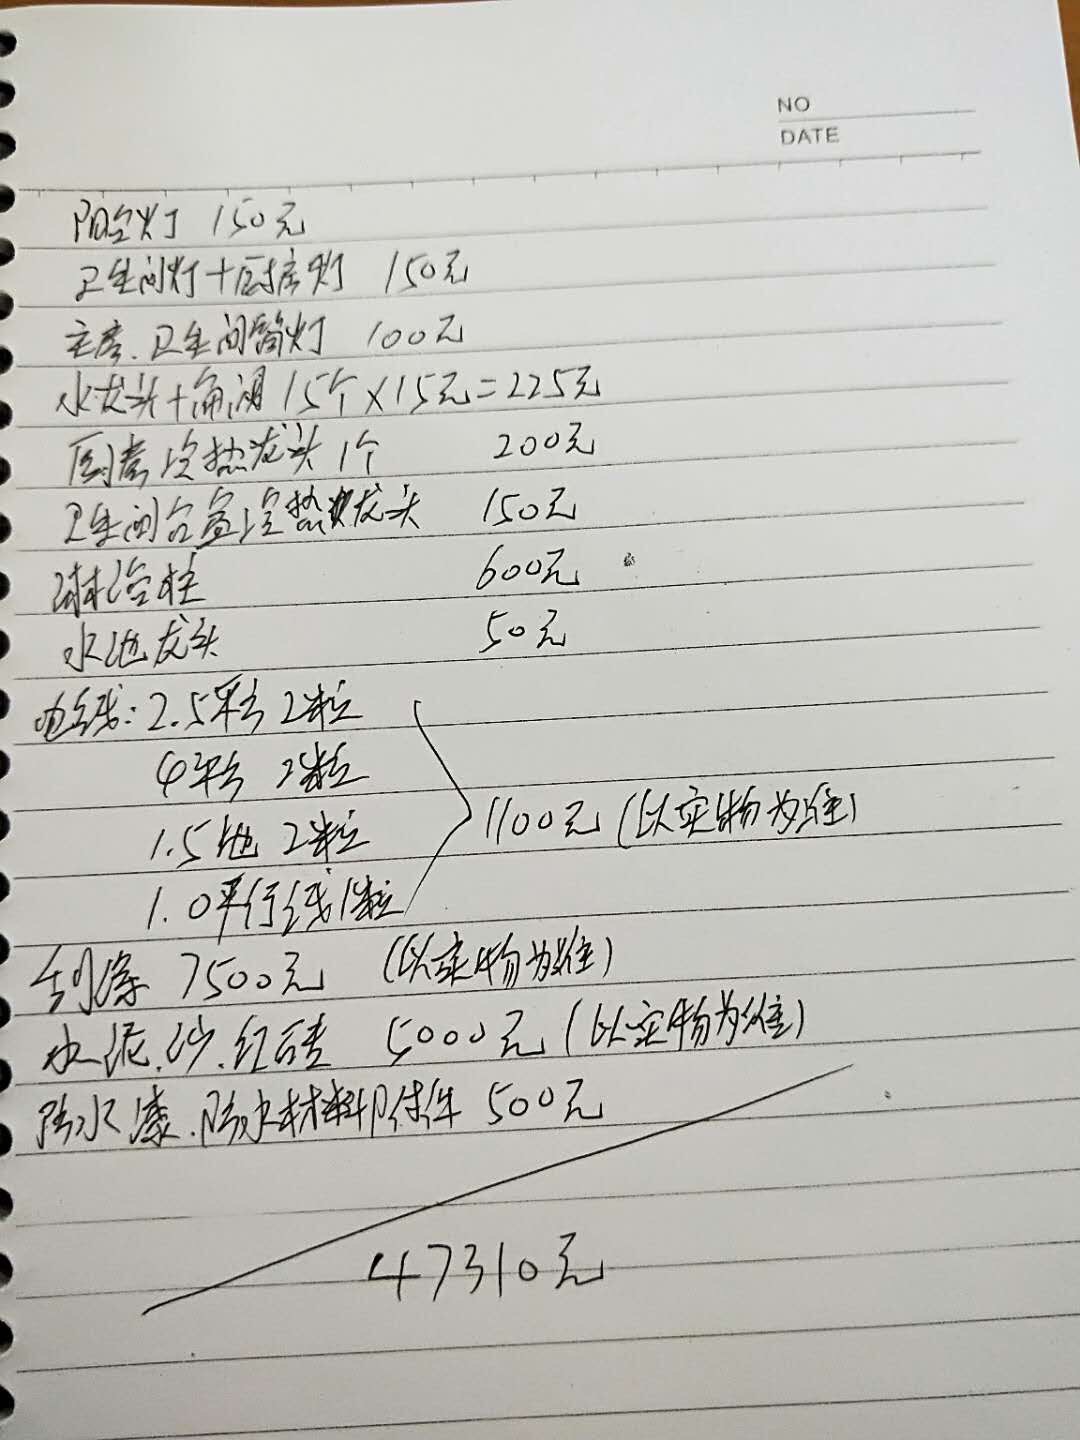 NO
DATE
阳台灯 150元
卫生间灯+厨房灯 150元
主房.卫生间筒灯 100元
水龙头+角阀 15个×15元=225元
厨房冷热龙头1个 200元
卫生间台盆冷热龙头 150元
淋浴柱 600元
水池龙头 50元
电线:2.5平方 2粒
4平方 2粒
1.5地 2粒
1.0平行线1粒
1100元(以实物为准)
刮漆 7500元 (以实物为准)
水泥.沙.红砖 5000元(以实物为准)
防水漆.防水材料附件 500元
47310元